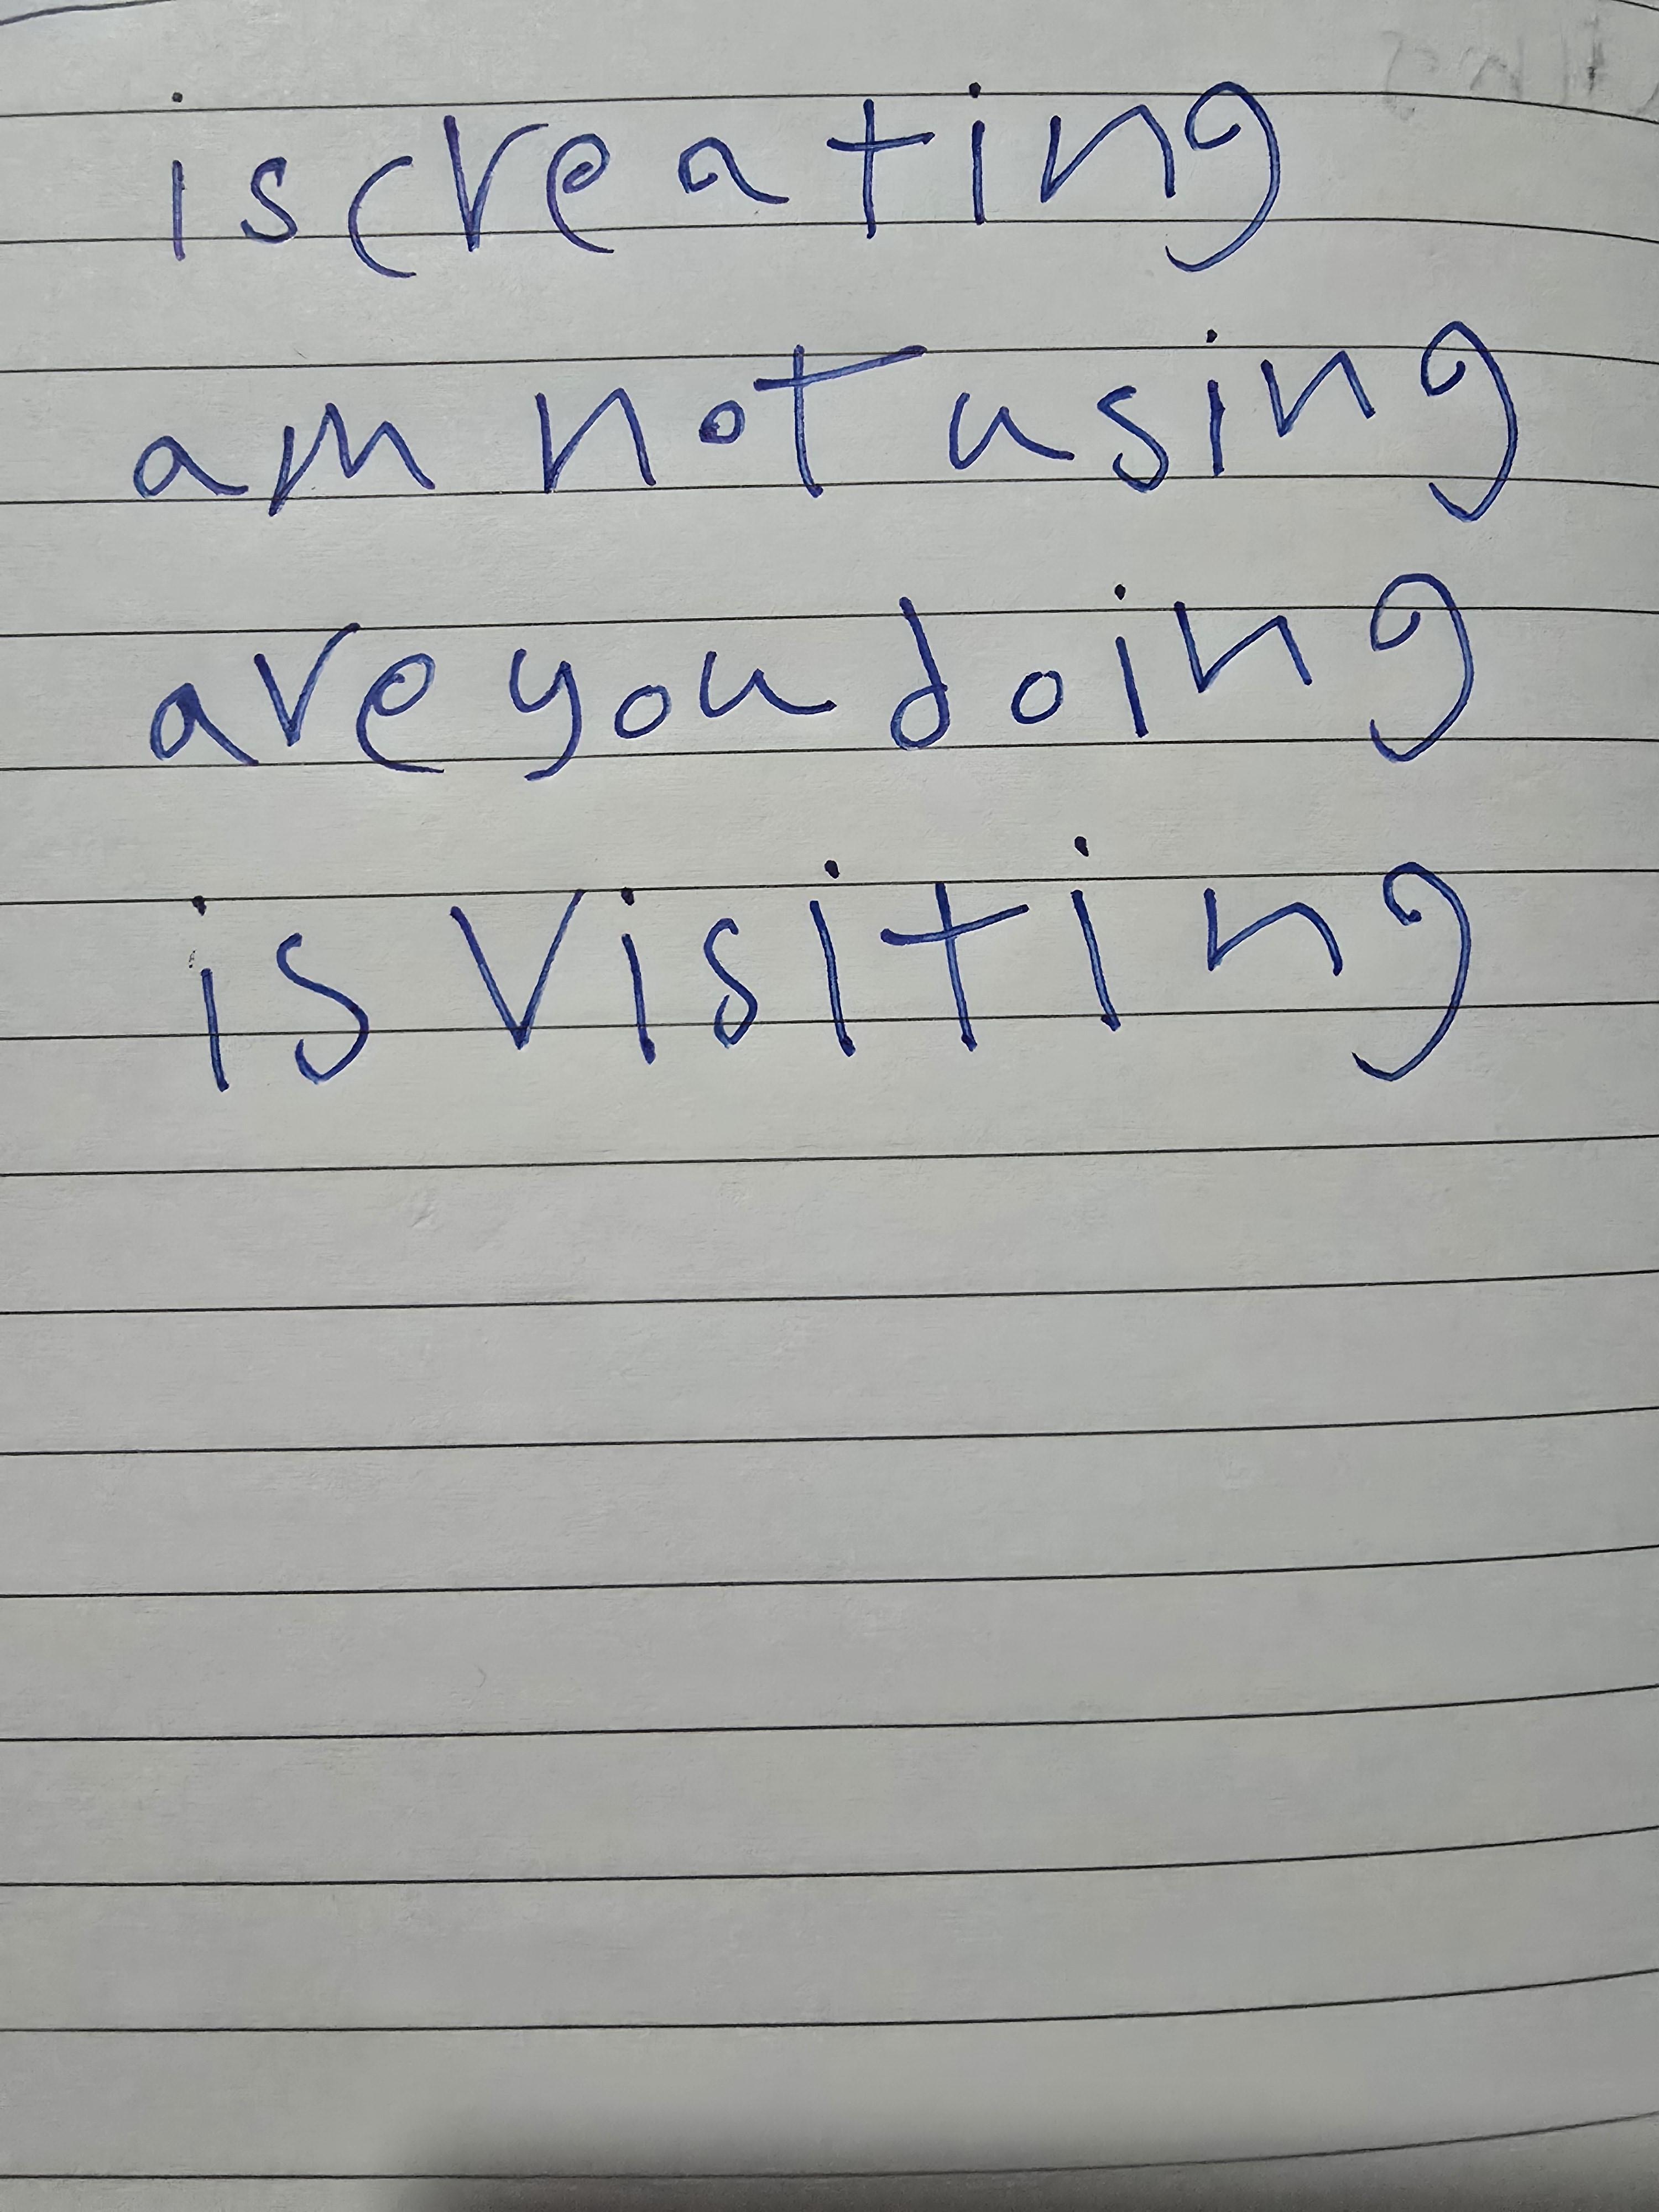 is creating
am not using
are you doing
is visiting